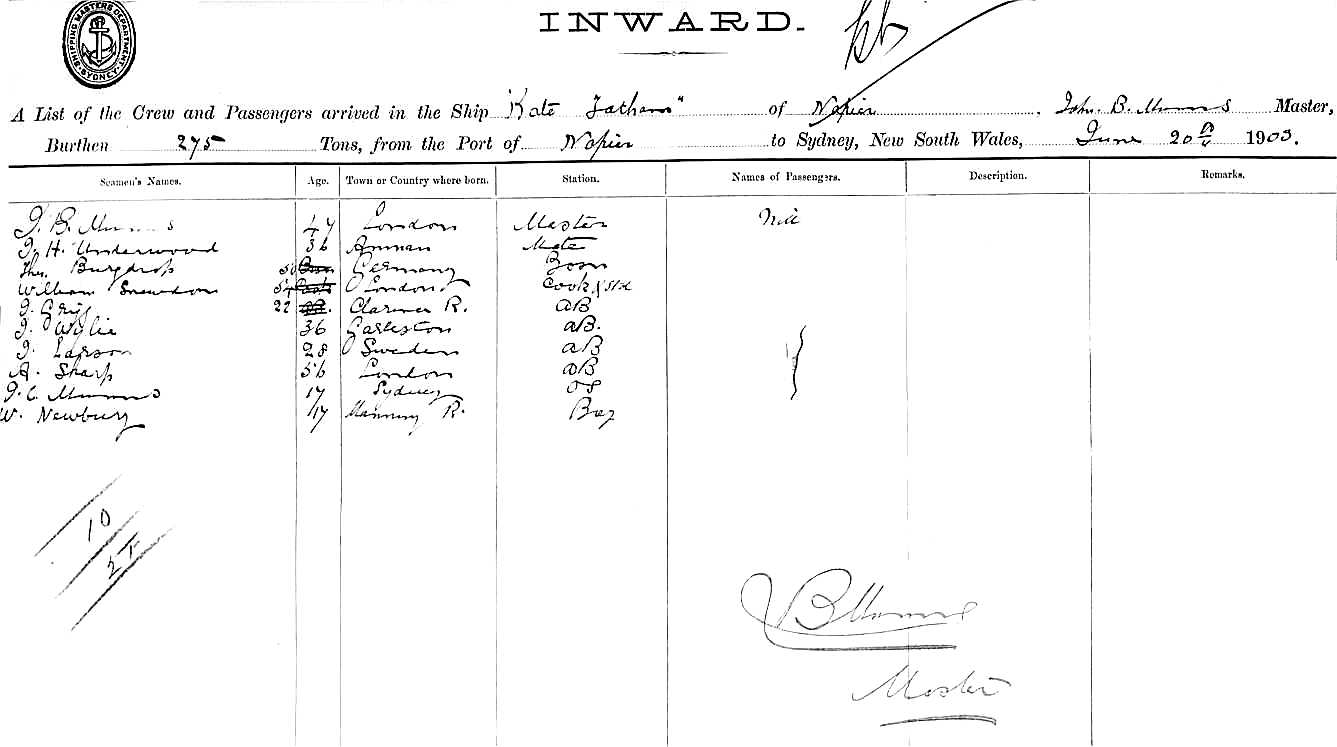 SHIPPING MASTERS DEPARTMENT. SYDNEY
INWARD.
A List of the Crew and Passengers arrived in the Ship "Kate Tatham" of Napier, John. B. Munns Master,
Burthen 275 Tons, from the Port of Napier to Sydney, New South Wales, June 20th 1903.
Seamen's Names. Age. Town or Country where born. Station. Names of Passengers. Description. Remarks.
J. B. Munns 47 London Master Nil
J. H. Underwood 36 Mate
Thos. Burgdrop 50 Germany Bosn
William Snowdon 54 London Cook & Std
22 Clarence R. AB
J. Wylie 36 Garleston AB.
J. Larson 28 Sweden AB
A. Sharp 56 London AB
J. C. Munns 17 Sydney OS
W. Newbury 17 Manning R. Boy
10
2T
JB Munns
Master